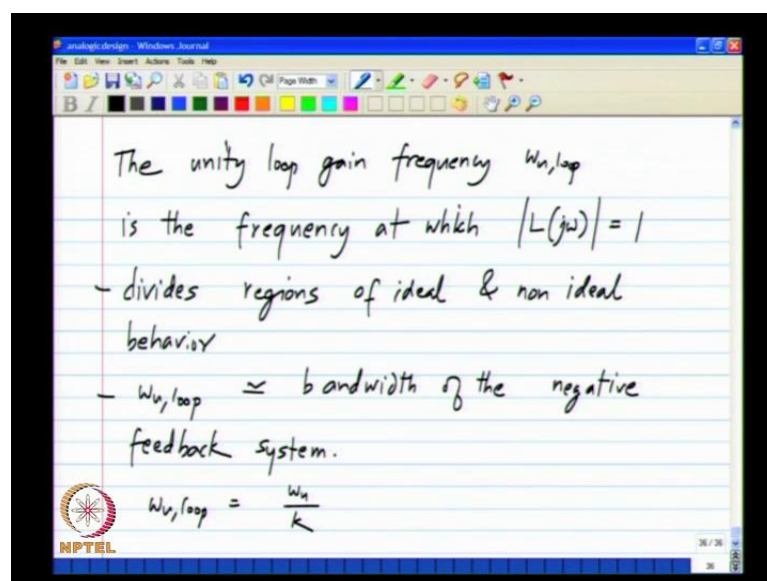 analogicdesign - Windows Journal
File Edit View Insert Actions Tools Help
Page Width
B I
The unity loop gain frequency ωu,loop
is the frequency at which |L(jω)| = 1
- divides regions of ideal & non ideal
behavior
- ωu,loop ≃ bandwidth of the negative
feedback system.
ωu,loop = ωu/k
NPTEL
36 / 36
36